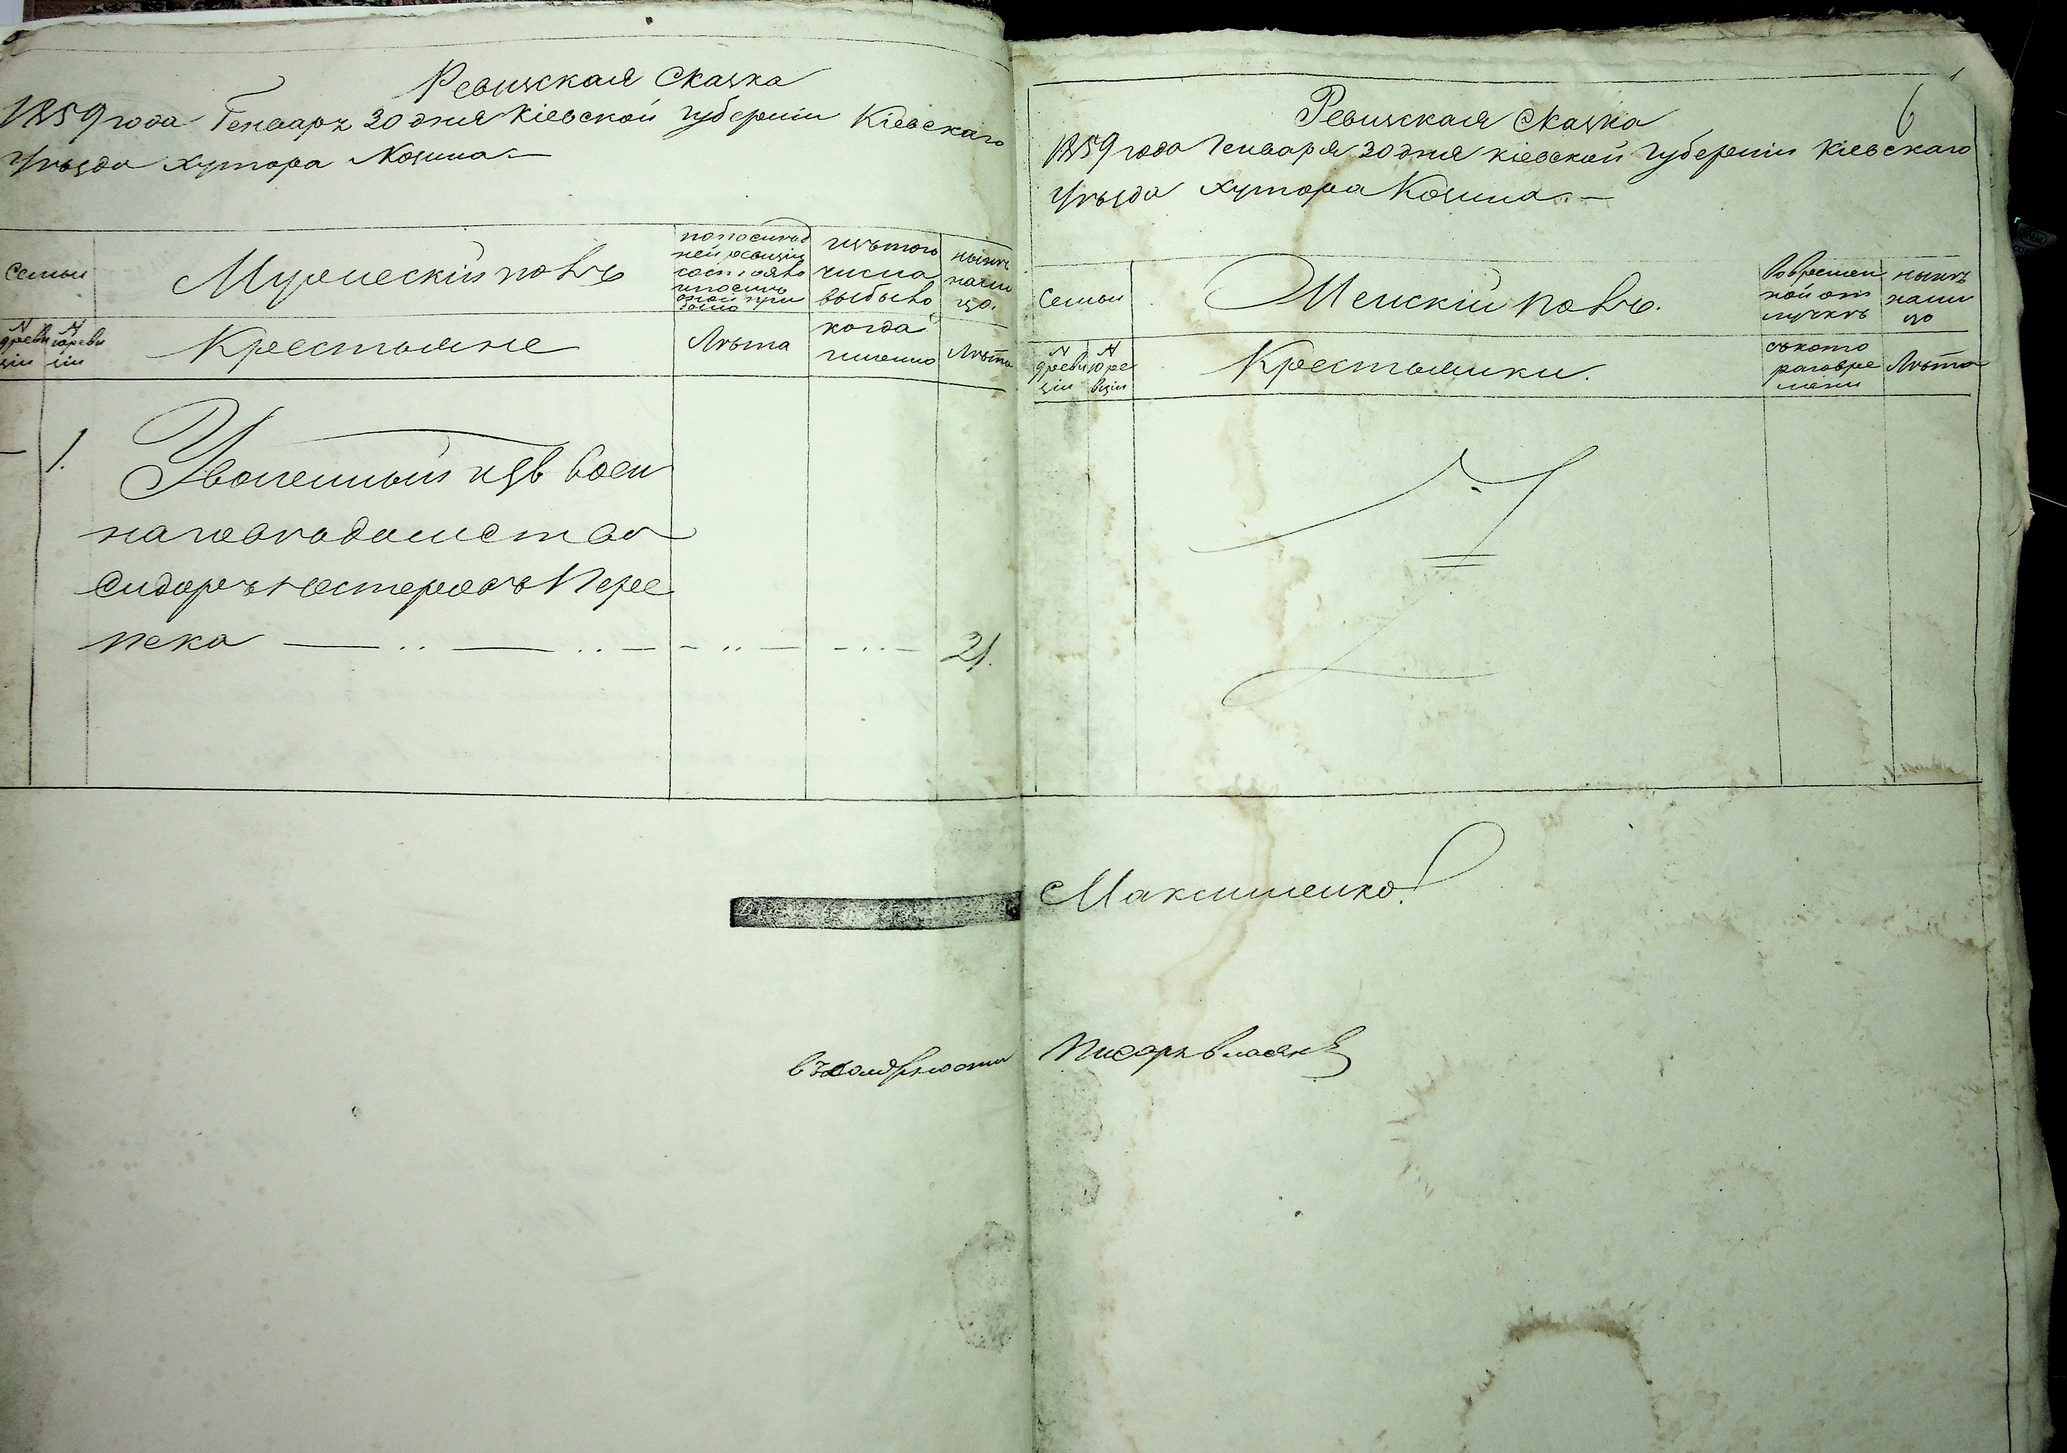 Ревизская Сказка
1859 года Генваря 30 дня Кіевской Губерніи Кіевскаго
Уѣзда хутора Козина
Семьи
Мужескій полъ
по послѣд
ней ревизіи
состояло
и послѣ
оной при
было
изъ того
числа
выбыло
нынѣ
на ли
цо.
№
9 реви
зіи
№
10 реви
зіи
Крестьяне
Лѣта
когда
именно
Лѣта
1.
Уволенный изъ воен
наго вѣдомства
Сидоръ Нестеровъ Пере
пека
21.
въ должности
6
Ревизская Сказка
1859 года Генваря 30 дня Кіевской Губерніи Кіевскаго
Уѣзда хутора Козина.
Семьи
Женскій полъ.
Во времен
ной от
лучкѣ
нынѣ
на ли
цо
№
9 реви
зіи
№
10 ре
визіи
Крестьянки.
съ кото
раго вре
мени
Лѣта
Максименко
Писарь